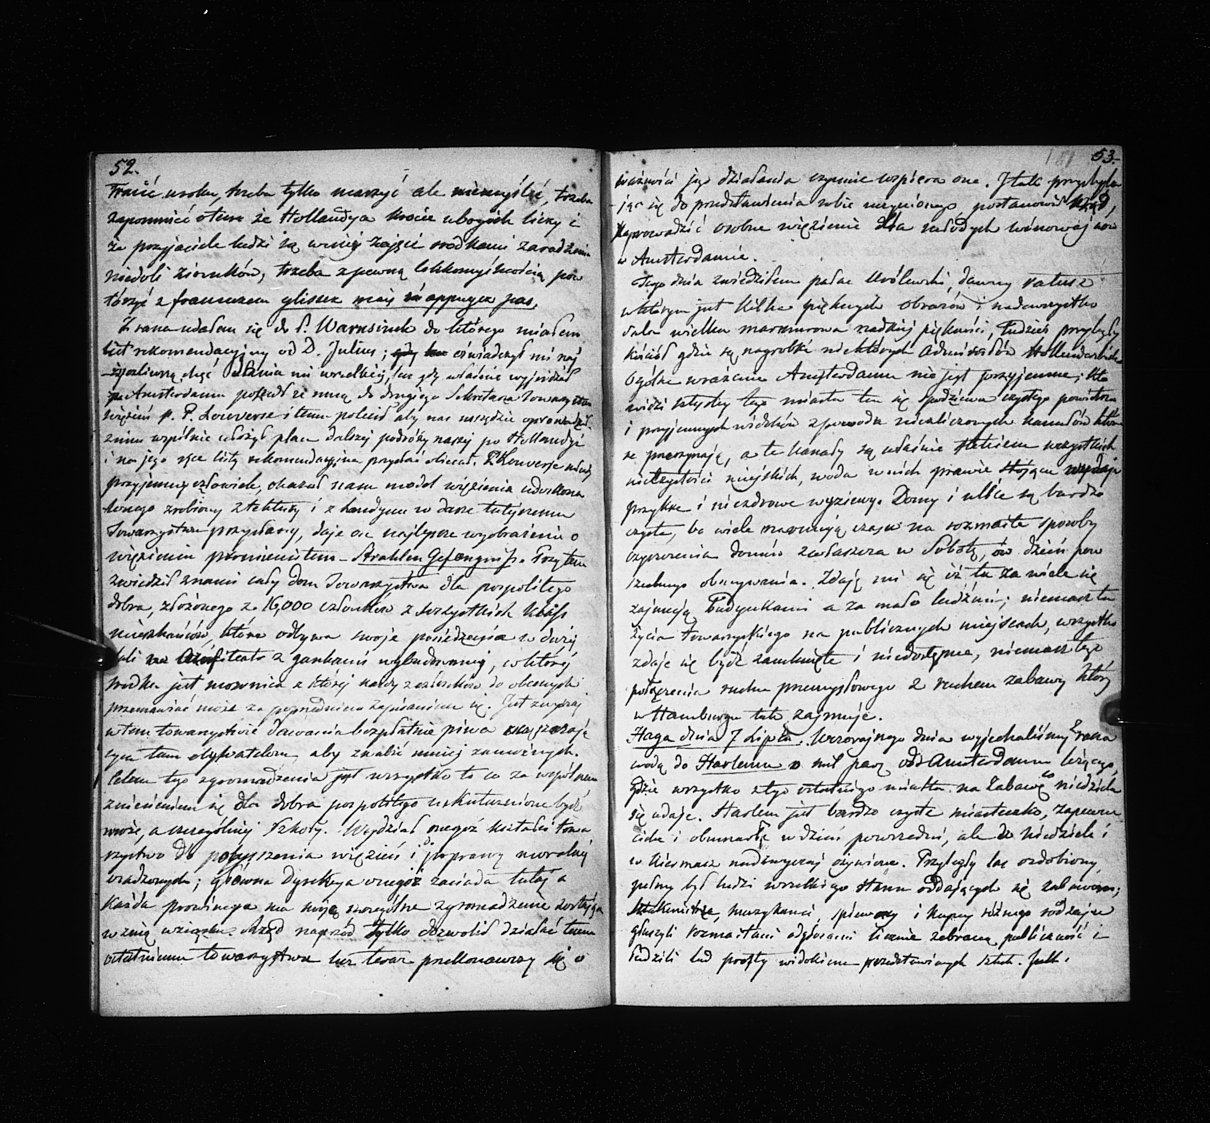 52.
tracić uroku, trzeba tylko marzyć ale niemyśleć, trzeba
zapomnieć o tem że Hollandya krocie ubogich liczy i
że przyjaciele ludzi są w niej zajęci środkami zaradzenia
niedoli ziomków, trzeba z pewną lekkomyślnością pow
tórzyć z francuzem glissez mais n'appuyez pas.
Z rana udałem się do P. Warnsinck do którego miałem
list rekomendacyjny od D. Julius; oświadczył mi naj
życzliwszą chęć dania mi wszelkiej, lecz gdy właśnie wyjeżdżał
Amsterdamu poszedł ze mną do drugiego Sekretarza Towarzystwa
więzień p. P. i temu polecił aby nas wszędzie oprowadził.
z nim wspólnie ułożył plan dalszej podróży naszej po Hollandyi
i na jego ręce listy rekomendacyjne przysłać obiecał. P.
przyjemny człowiek, okazał nam model więzienia
zrobiony z tektury i z Londynu w darze tutejszemu
Towarzystwu przysłany, daje on najlepsze wyobrażenie o
więzieniu promienistem – Strahlen Gefängniss. Poczem
zwiedził z nami cały dom Towarzystwa dla pospolitego
dobra, złożonego z 16,000 członków z wszystkich klass
mieszkańców, które odbywa swoje posiedzenia w dużej
sali z gankami wybudowanej, w której
środku jest mownica z której każdy z członków do obecnych
przemawiać może za poprzedniem zapisaniem się. Jest zwyczaj
w tem towarzystwie dawania bezpłatnie piwa
cym tam obywatelom, aby zwabić mniej zamożnych.
Celem tego zgromadzenia jest wszystko to co za wspólnem
zniesieniem się dla dobra pospolitego uskutecznione być
może, a szczególniej Szkoły. Wydział onegoż kształci towa
rzystwo do polepszenia więzień i do poprawy moralnej
uwiezionych; główna dyrekcya onegoż zasiada tutaj a
każda prowincya ma swoje szczególne zgromadzenie
w znią związku. Rząd naprzód tylko dozwolił działać temu
ostatniemu towarzystwu lecz teraz przekonawszy się o
53.
ważności jego działania czynnie wspiera one. I tak przychyla
jąc się do przedstawienia sobie uczynionego postanowił Rząd,
zaprowadzić osobne więzienie dla młodych winowajców
w Amsterdamie.
Tego dnia zwiedziłem pałac królewski, dawny ratusz
w którym jest kilka pięknych obrazów i nadewszystko
sala wielka marmurowa rzadkiej piękności, tudzież przybyły
kościół gdzie są nagrobki niektórych Admirałów Hollenderskich.
Ogólne wrażenie Amsterdamu nie jest przyjemne; kto
widzi sztychy tego miasta ten się spodziewa czystego powietrza
i przyjemnych widoków z powodu niezliczonych kanałów które
je przerzynają, a te kanały są właśnie
nieczystości miejskich, woda w nich prawie stojąca wydaje
przykre i niezdrowe wyziewy. Domy i ulice są bardzo
czyste, bo wiele marnują czasu na rozmaite sposoby
czyszczenia domów zwłaszcza w Sobotę, w dzień pow
szechnego obmywania. Zdaje mi się iż tu za wiele się
zajmują budynkami a za mało ludźmi; niemasz tu
życia towarzyskiego na publicznych miejscach, wszystko
zdaje się być zamknięte i niedostępne, niemasz tego
połączenia ruchu przemysłowego z ruchem zabawy który
w Hamburgu tak zajmuje.
Haga dnia 7 Lipca. Wczorajszego dnia wyjechaliśmy z rana
wodą do Harlemu o mil parę od Amsterdamu leżącego,
gdzie wszystko z tego ostatniego miasta na zabawę co niedziela
się udaje. Harlem jest bardzo czyste miasteczko, zapewne
ciche i obumarłe w dzień powszedni, ale w niedzielę i
w kiermasz nadzwyczaj ożywione. Przyległy las ozdobiony
pełny był ludzi wszelkiego stanu oddających się zabawom;
muzykanci, śpiewacy i kupcy różnego rodzaju
głuszyli rozmaitemi odgłosami licznie zebraną publiczność i
łudzili lud prosty widokiem przedstawianych sztuk. Jest